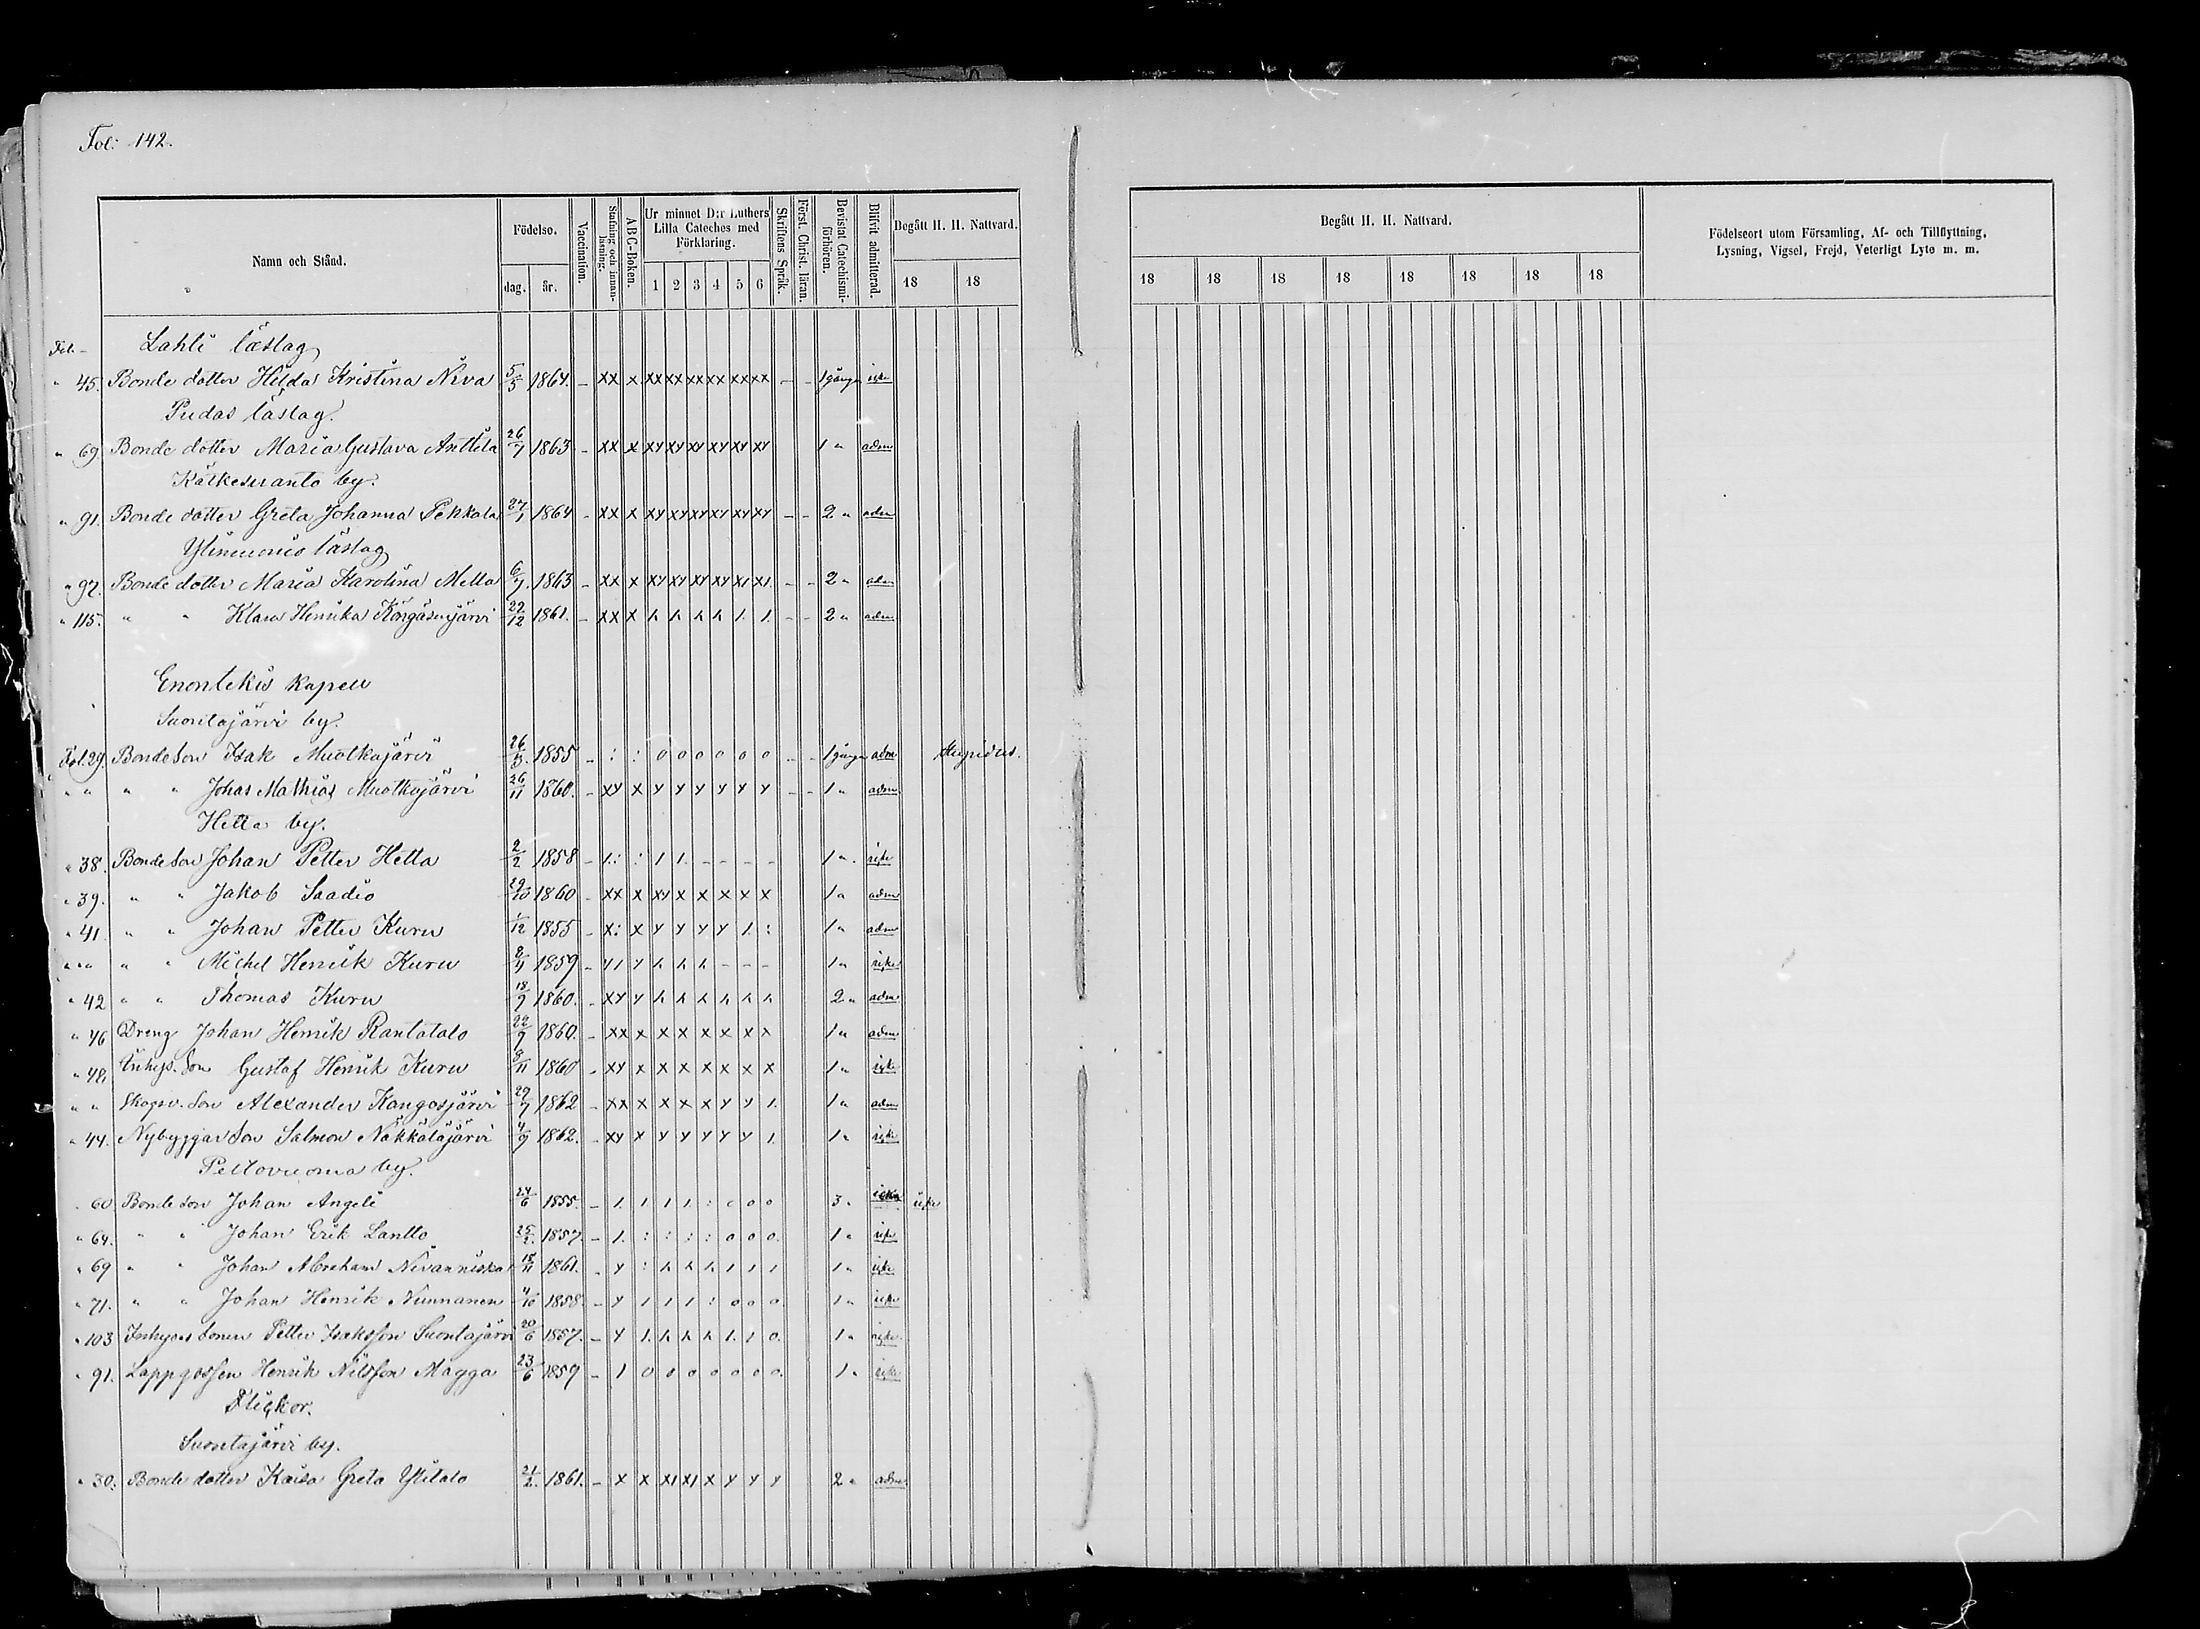 Fol: 142.
Namn och Stånd. Födelse. dag. år. Vaccination. Stafning och innanläsning. ABC-Boken. Ur minnet D:r Luthers Lilla Cateches med Förklaring. 1 2 3 4 5 6 Skriftens Språk. Först. Christ. läran. Bevistat Catechismiförhören. Blifvit admitterad. Begått H. H. Nattvard. 18 18
Begått H. H. Nattvard. 18 18 18 18 18 18 18 18
Födelseort utom Församling, Af- och Tillflyttning, Lysning, Vigsel, Frejd, Veterligt Lyte m. m.
Fol. Lahti läslag
" 45. Bonde dotter Hilda Kristina Niva 5/5 1864. - xx x xx xx xx xx xx xx - - 1 gången icke
Pudas läslag.
" 69. Bonde dotter Maria Gustava Anttila 26/7 1863 - xx x xy xy xy xy xy xy 1 " adm
Kätkesuanto by.
" 91. Bonde dotter Greta Johanna Pekkala 27/1 1864 - xx x xy xy xy xy xy xy - - 2 " adm
Ylimuonio läslag
" 97. Bonde dotter Maria Karolina Mella 6/7. 1863 - xx x xy xy xy xy x1 x1 - - 2 " adm
" 115. " " Klara Henrika Kangasenjärvi 29/12 1861. - xx x 1. 1. - - 2 " adm
Enontekis kapell
Suontajärvi by.
Fol. 29. Bonde Son Isak Muotkajärvi 26/3. 1855 - : : 0 0 0 0 0 0 - - 1 gången adm stupidus.
" " " " Johan Mathias Muotkajärvi 26/11 1860. - xy x y y y y y y - - 1 " adm
Hetta by.
" 38. Bonde Son Johan Petter Hetta 2/2 1858 - 1: : 1 1. - - - - 1 " icke
" 39. " " Jakob Saadio 29/10 1860 - xx x xy x x x x x 1 " adm
" 41. " " Johan Petter Kuru 1/12 1855 - x: x y y y y 1. : 1 " adm
" " " " Michel Henrik Kuru 8/11 1859 - y1 y - - - 1 " icke
" 42 " " Thomas Kuru 18/9 1860. - xy y 2 " adm
" 46 Dreng Johan Henrik Rantatalo 22/9 1860. - xx x x x x x x x 1 " adm
" 48. Inhys. Son Gustaf Henrik Kuru 8/11 1860 - xy x x x x x x x 1 " icke
" " Skogsv. Son Alexander Kangosjärvi 29/7 1862 - xx x x x x y y 1. 1 " adm
" 44. Nybyggar Son Salmon Näkkäläjärvi 4/9 1862. - xy x y y y y y 1. 1 " icke
Peltovuoma by.
" 60 Bonde Son Johan Angeli 24/6 1855. - 1. 1 1 1. : 0 0 0 3 " icke icke
" 64. " " Johan Erik Lantto 25/2. 1857 - 1. : : : : 0 0 0. 1 " icke
" 69 " " Johan Abraham Nivanniska 18/11 1861. - y : 1 1 1 1 " icke
" 71. " " Johan Henrik Nunnanen 4/10 1858. - y 1 1 1 : 0 0 0 1 " icke
" 103 Inhyses Sonen Petter Isaksson Suontajärvi 20/6 1857. - y 1. 1. 1 0. 1 " icke
" 91. Lappgossen Henrik Nilsson Magga 23/6 1859 - 1 0 0 0 0 0 0 0. 1 " icke
Flickor.
Suontajärvi by.
" 30. Bonde dotter Kaisa Greta Ylitalo 21/2. 1861. - x x x1 x1 x y y y 2 " adm